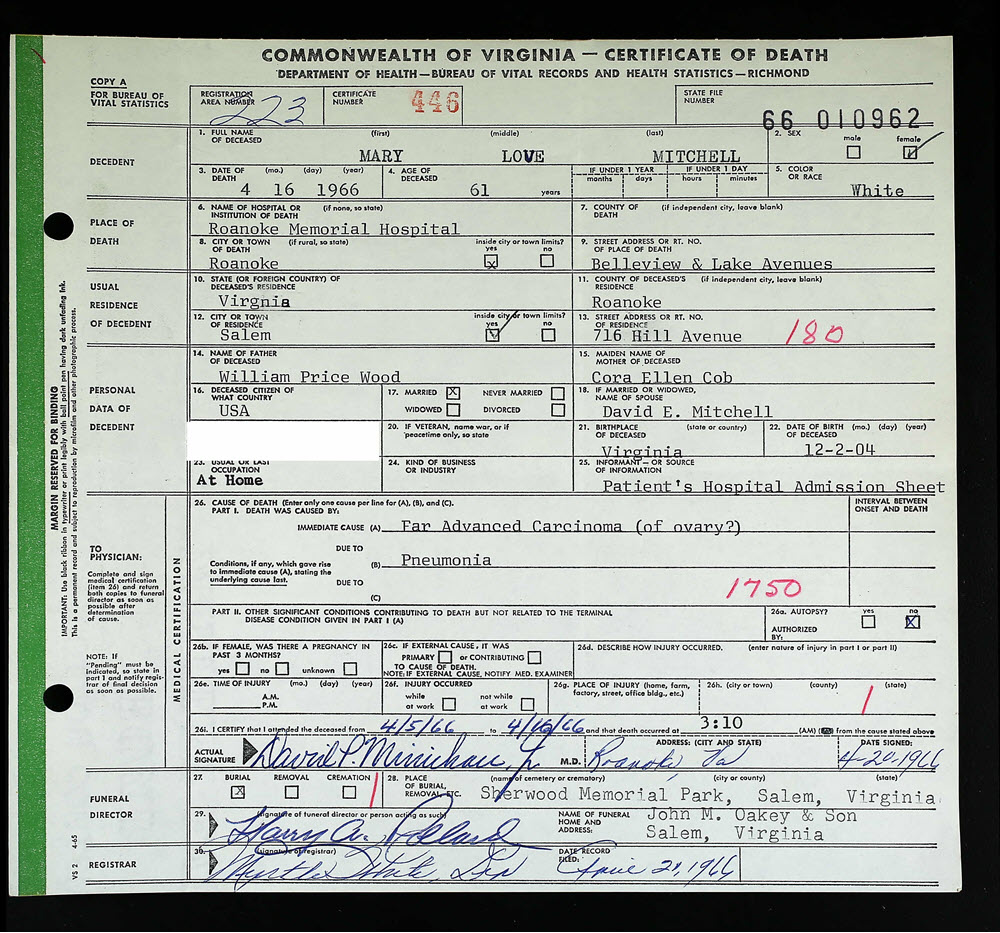 COMMONWEALTH OF VIRGINIA — CERTIFICATE OF DEATH
DEPARTMENT OF HEALTH—BUREAU OF VITAL RECORDS AND HEALTH STATISTICS—RICHMOND
COPY A
FOR BUREAU OF
VITAL STATISTICS
REGISTRATION
AREA NUMBER 223
CERTIFICATE
NUMBER 446
STATE FILE
NUMBER
66 010962
DECEDENT
1. FULL NAME
OF DECEASED
(first) (middle) (last)
MARY LOVE MITCHELL
2. SEX
male female
3. DATE OF (mo.) (day) (year)
DEATH 4 16 1966
4. AGE OF
DECEASED 61 years
IF UNDER 1 YEAR IF UNDER 1 DAY
months days hours minutes
5. COLOR
OR RACE
White
PLACE OF
DEATH
6. NAME OF HOSPITAL OR (if none, so state)
INSTITUTION OF DEATH
Roanoke Memorial Hospital
7. COUNTY OF (if independent city, leave blank)
DEATH
8. CITY OR TOWN (if rural, so state) inside city or town limits?
OF DEATH yes no
Roanoke X
9. STREET ADDRESS OR RT. NO.
OF PLACE OF DEATH
Belleview & Lake Avenues
USUAL
RESIDENCE
OF DECEDENT
10. STATE (OR FOREIGN COUNTRY) OF
DECEASED'S RESIDENCE
Virgnia
11. COUNTY OF DECEASED'S (if independent city, leave blank)
RESIDENCE
Roanoke
12. CITY OR TOWN inside city or town limits?
OF RESIDENCE yes no
Salem
13. STREET ADDRESS OR RT. NO.
OF RESIDENCE
716 Hill Avenue 180
PERSONAL
DATA OF
DECEDENT
14. NAME OF FATHER
OF DECEASED
William Price Wood
15. MAIDEN NAME OF
MOTHER OF DECEASED
Cora Ellen Cob
16. DECEASED CITIZEN OF
WHAT COUNTRY
USA
17. MARRIED X NEVER MARRIED
WIDOWED DIVORCED
18. IF MARRIED OR WIDOWED,
NAME OF SPOUSE
David E. Mitchell
20. IF VETERAN, name war, or if
peacetime only, so state
21. BIRTHPLACE (state or country)
OF DECEASED
Virginia
22. DATE OF BIRTH (mo.) (day) (year)
OF DECEASED
12-2-04
23. USUAL OR LAST
OCCUPATION
At Home
24. KIND OF BUSINESS
OR INDUSTRY
25. INFORMANT— OR SOURCE
OF INFORMATION
Patient's Hospital Admission Sheet
MARGIN RESERVED FOR BINDING
IMPORTANT: Use black ribbon in typewriter or print legibly with ball point pen having dark unfading ink.
This is a permanent record and subject to reproduction by microfilm and other photographic process.
TO
PHYSICIAN:
Complete and sign
medical certification
(item 26) and return
both copies to funeral
director as soon as
possible after
determination
of cause.
NOTE: If
"Pending" must be
indicated, so state in
part I and notify regis-
trar of final decision
as soon as possible.
MEDICAL CERTIFICATION
26. CAUSE OF DEATH (Enter only one cause per line for (A), (B), and (C).
PART I. DEATH WAS CAUSED BY:
INTERVAL BETWEEN
ONSET AND DEATH
IMMEDIATE CAUSE (A) Far Advanced Carcinoma (of ovary?)
DUE TO
Conditions, if any, which gave rise
to immediate cause (A), stating the
underlying cause last.
(B) Pneumonia
DUE TO
(C)
1750
PART II. OTHER SIGNIFICANT CONDITIONS CONTRIBUTING TO DEATH BUT NOT RELATED TO THE TERMINAL
DISEASE CONDITION GIVEN IN PART I (A)
26a. AUTOPSY? yes no
AUTHORIZED X
BY:
26b. IF FEMALE, WAS THERE A PREGNANCY IN
PAST 3 MONTHS?
yes no unknown
26c. IF EXTERNAL CAUSE, IT WAS
PRIMARY or CONTRIBUTING
TO CAUSE OF DEATH.
NOTE: IF EXTERNAL CAUSE, NOTIFY MED. EXAMINER
26d. DESCRIBE HOW INJURY OCCURRED. (enter nature of injury in part I or part II)
26e. TIME OF INJURY (mo.) (day) (year)
A.M.
P.M.
26f. INJURY OCCURRED
while not while
at work at work
26g. PLACE OF INJURY (home, farm,
factory, street, office bldg., etc.)
26h. (city or town) (county) (state)
26i. I CERTIFY that I attended the deceased from 4/5/66 to 4/16/66 and that death occurred at 3:10 (AM) (PM) from the cause stated above
ACTUAL
SIGNATURE David P. Minichan, Jr. M.D.
ADDRESS: (CITY AND STATE)
Roanoke, Va
DATE SIGNED:
4-20-1966
FUNERAL
DIRECTOR
27. BURIAL REMOVAL CREMATION
X
28. PLACE (name of cemetery or crematory) (city or county) (state)
OF BURIAL,
REMOVAL, ETC. Sherwood Memorial Park, Salem, Virginia
29. (signature of funeral director or person acting as such)
NAME OF FUNERAL
HOME AND
ADDRESS:
John M. Oakey & Son
Salem, Virginia
REGISTRAR
30. (signature of registrar)
Myrtle White, Dep
DATE RECORD
FILED: April 21, 1966
VS 2 4-65